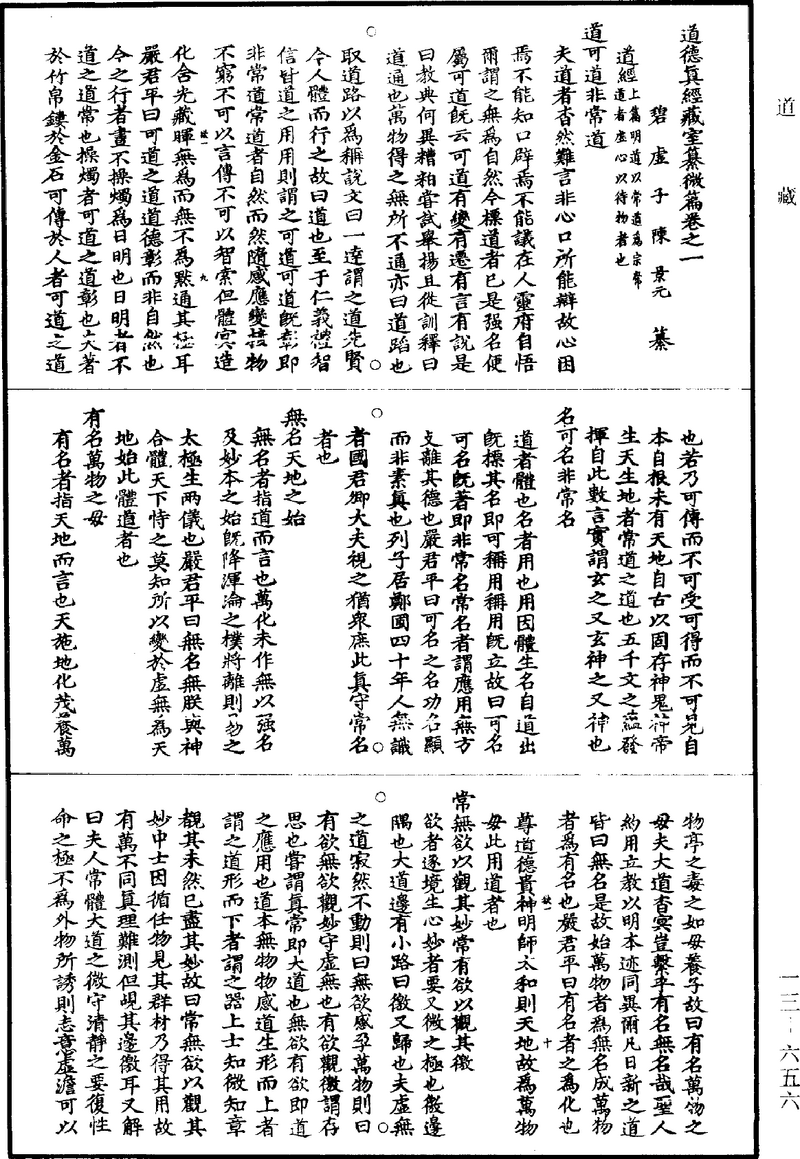 道藏
一三－六五六
道德真經藏室纂微篇卷之一
碧虛子陳景元纂
道經上篇明道以常道為宗常
道者虛心以待物者也
道可道非常道
夫道者杳然難言非心口所能辯故心困
焉不能知口辟焉不能議在人靈府自悟
爾謂之無為自然今標道者已是强名便
屬可道既云可道有變有遷有言有說是
曰教典何異糟粕嘗試舉揚且從訓釋曰
道通也萬物得之無所不通亦曰道蹈也
取道路以為稱說文曰一達謂之道先賢
令人體而行之故曰道也至于仁義禮智
信皆道之用用則謂之可道可道既彰即
非常道常道者自然而然隨感應變接物
不窮不可以言傳不可以智索但體冥造
化含光藏暉無為而無不為默通其極耳
嚴君平曰可道之道道德彰而非自然也
今之行者晝不操燭為日明也日明者不
道之道常也操燭者可道之道彰也夫著
於竹帛鏤於金石可傳於人者可道之道
也若乃可傳而不可受可得而不可見自
本自根未有天地自古以固存神鬼神帝
生天生地者常道之道也五千文之蘊發
揮自此數言實謂玄之又玄神之又神也
名可名非常名
道者體也名者用也用因體生名自道出
既標其名即可稱用稱用既立故曰可名
可名既著即非常名常名者謂應用無方
支離其德也嚴君平曰可名之名功名顯
而非素真也列子居鄭圃四十年人無識
者國君卿大夫視之猶衆庶此真守常名
者也
無名天地之始
無名者指道而言也萬化未作無以强名
及妙本之始既降渾淪之樸將離則物之
太極生兩儀也嚴君平曰無名無朕與神
合體天下恃之莫知所以變於虛無為天
地始此體道者也
有名萬物之母
有名者指天地而言也天施地化茂養萬
物亭之毒之如母養子故曰有名萬物之
母夫大道杳冥豈繫乎有名無名哉聖人
約用立教以明本迹同異爾凡日新之道
皆曰無名是故始萬物者為無名成萬物
者為有名也嚴君平曰有名者之為化也
尊道德貴神明師太和則天地故為萬物
母此用道者也
常無欲以觀其妙常有欲以觀其徼
欲者逐境生心妙者要又微之極也徼邊
隅也大道邊有小路曰徼又歸也夫虛無
之道寂然不動則曰無欲感孕萬物則曰
有欲無欲觀妙守虛無也有欲觀徼謂存
思也嘗謂真常即大道也無欲有欲即道
之應用也道本無物物感道生形而上者
謂之道形而下者謂之器上士知微知章
觀其未然已盡其妙故曰常無欲以觀其
妙中士因循任物見其群材乃得其用故
有萬不同真理難測但覘其邊徼耳又解
曰夫人常體大道之微守清靜之要復性
命之極不為外物所誘則志意虛澹可以